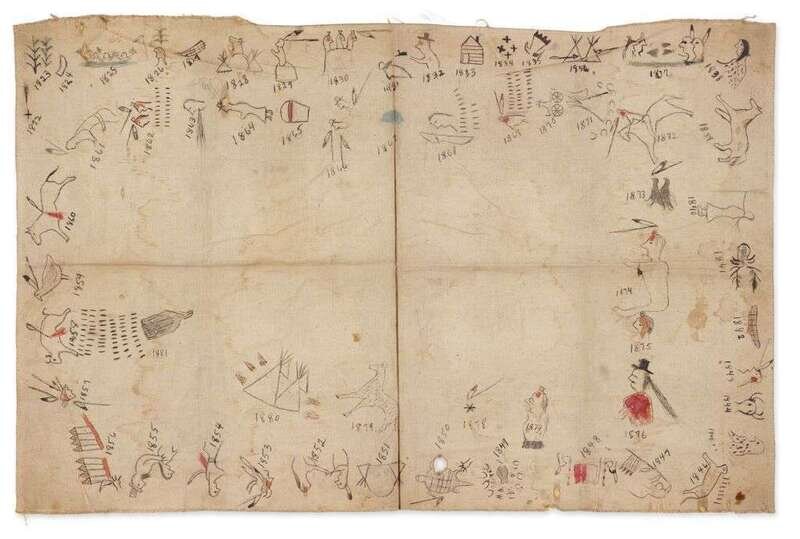 1822
1823
1824
1825
1826
1828
1829
1830
1832
1833
1834
1835
1836
1840
1841
1842
1843
1844
1846
1847
1848
1849
1850
1851
1852
1853
1854
1855
1856
1857
1858
1859
1860
1861
1862
1863
1864
1865
1866
1868
1869
1870
1871
1872
1873
1874
1875
1876
1877
1878
1879
1880
1881